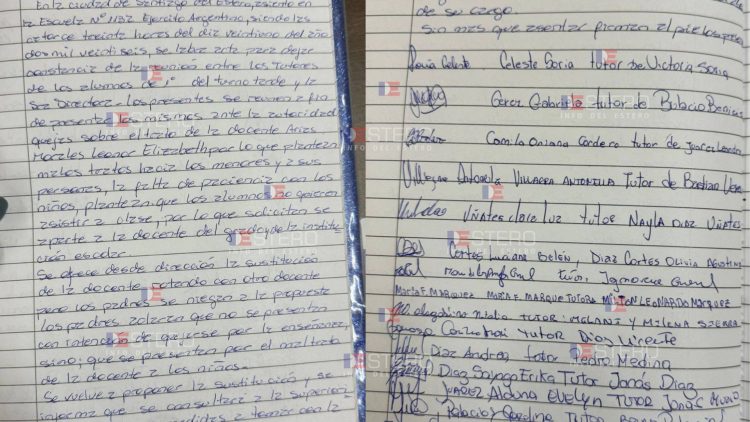 En la ciudad de Santiago del Estero, asiento en
la Escuela Nº 1132 Ejercito Argentino, siendo las
catorce treinta horas del dia veintiuno del año
dos mil veintiseis, se labra acta para dejar
constancia de la reunión entre los tutores
de los alumnos de 1° del turno tarde y la
Sra Directora. Los presentes se reunen a fin
de presentar los mismos ante la autoridad
quejas sobre el trato de la docente Arias
Morales Leonor Elizabeth por lo que plantean
malos tratos hacia los menores y a sus
personas, la falta de paciencia con los
niños, plantean que los alumnos no quieren
asistir a clase, por lo que solicitan se
aparte a la docente del grado y de la institu
ción escolar.
Se ofrece desde dirección la sustitución
de la docente rotando con otro docente
pero los padres se niegan a la propuesta
los padres aclaran que no se presentan
con intención de quejarse por la enseñanza,
sino; que se presentan por el maltrato
de la docente a los niños.
Se vuelve a proponer la sustitución y se
informa que se consultará a la superior
a tomar con la
de su cargo.
Sin más que asentar firman al pie los presen
Soria Celeste Celeste Soria tutor de Victoria Soria
Gerez Gabriela tutor de Bulacio Benicio
Camila Oriana Cordero tutor de
Villagra Antonella VILLAGRA ANTONELLA Tutor de Bastian Vera
Viñates Clara Luz tutor NAYLA DIAZ VIÑATES
Cortes Luciana Belén, Diaz Cortes Olivia Agostina
MARIA F. MARQUEZ MARIA F. MARQUEZ TUTORA MILTON LEONARDO MARQUEZ
Natalia TUTOR: MILANI Y MILENA SIERRA
TUTOR Diaz Vicente
Diaz Andrea tutor Pedro Medina
Diaz Sayago Erika Tutor Jonás Diaz
JUAREZ Aldana EVELYN TUTOR JONAS
Palacios Carolina TUTOR
ESTERO
INFO DEL ESTERO